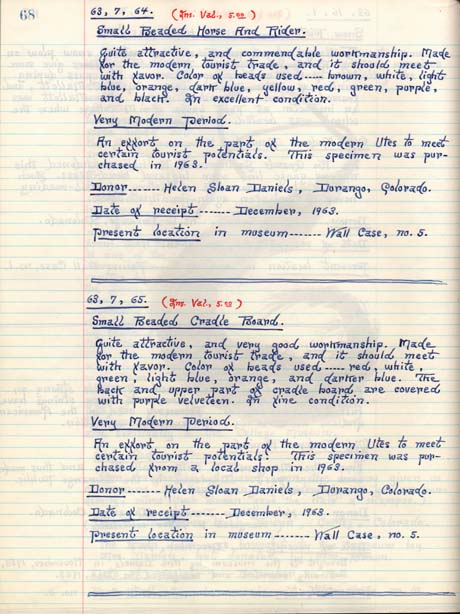 68
63, 7, 64. (Ins. Val., 5.00)
Small Beaded Horse And Rider.
Quite attractive, and commendable workmanship. Made
for the modern tourist trade, and it should meet
with favor. Color of beads used ---- brown, white, light
blue, orange, dark blue, yellow, red, green, purple,
and black. In excellent condition.
Very Modern Period.
An effort on the part of the modern Utes to meet
certain tourist potentials. This specimen was pur-
chased in 1963.
Donor ------- Helen Sloan Daniels, Durango, Colorado.
Date of receipt ------- December, 1963.
Present location in museum ------- Wall Case, no. 5.
63, 7, 65. (Ins. Val., 5.00)
Small Beaded Cradle Board.
Quite attractive, and very good workmanship. Made
for the modern tourist trade, and it should meet
with favor. Color of beads used ----- red, white,
green, light blue, orange, and darker blue. The
back and upper part of cradle board are covered
with purple velveteen. In fine condition.
Very Modern Period.
An effort on the part of the modern Utes to meet
certain tourist potentials. This specimen was pur-
chased from a local shop in 1963.
Donor ------- Helen Sloan Daniels, Durango, Colorado.
Date of receipt ------- December, 1963.
Present location in museum ------- Wall Case, no. 5.